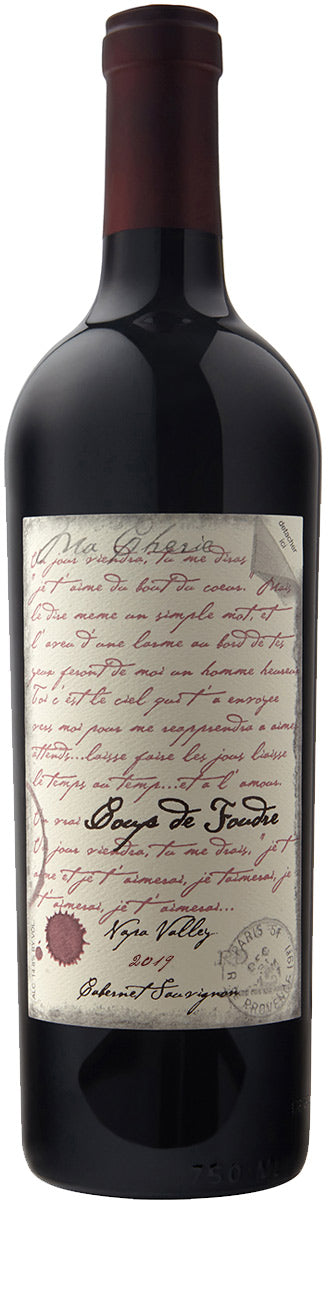 Ma Cherie
detacher
ici
Un jour viendra, tu me diras
"je t'aime du bout du coeur. Mais
le dire meme un simple mot, et
l'aveu d'une larme au bord de tes
yeux feront de moi un homme heureux
Toi c'est le ciel qui t'a envoyee
vers moi pour me reapprendra a aime
attends...laisse faire les jours liaisse
le temps au temp...et a l'amour.
Un vrai Coup de Foudre
Un jour viendra, tu me drais, "je t'
aime et je t'aimerai, je t'aimerai, je
t'aimerai, je t'aimerai...
Napa Valley
2019
Cabernet Sauvignon
PARIS 54
PROVENCE
750 ML